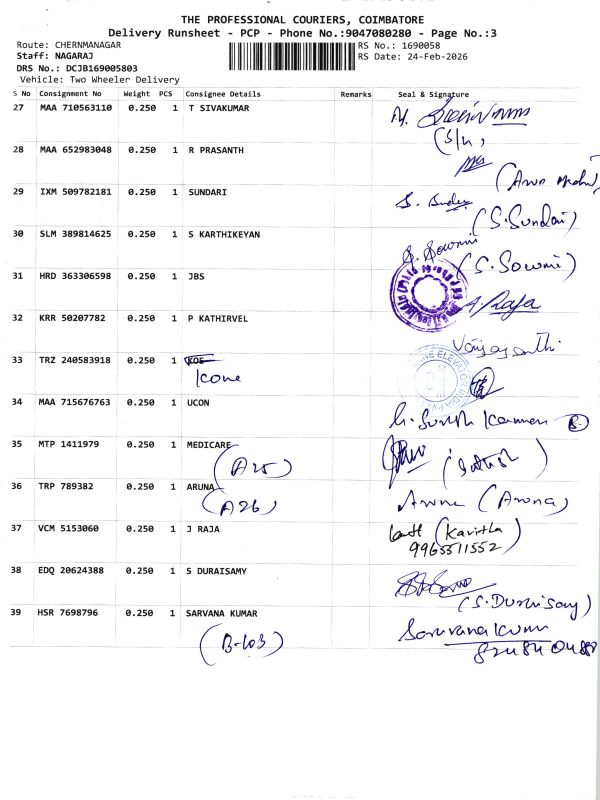 THE PROFESSIONAL COURIERS, COIMBATORE
Delivery Runsheet - PCP - Phone No.:9047080280 - Page No.:3
Route: CHERNMANAGAR
RS No.: 1690058
Staff: NAGARAJ
RS Date: 24-Feb-2026
DRS No.: DCJB169005803
Vehicle: Two Wheeler Delivery
S No Consignment No Weight PCS Consignee Details Remarks Seal & Signature
27 MAA 710563110 0.250 1 T SIVAKUMAR
(S/h,
28 MAA 652983048 0.250 1 R PRASANTH
29 IXM 509782181 0.250 1 SUNDARI
(S.Sundari)
30 SLM 389814625 0.250 1 S KARTHIKEYAN S. Sowmi
(S. Sowmi)
31 HRD 363306598 0.250 1 JBS
A. Raja
32 KRR 50207782 0.250 1 P KATHIRVEL
Vaijayanthi
33 TRZ 240583918 0.250 1 KOE
Kone
34 MAA 715676763 0.250 1 UCON
35 MTP 1411979 0.250 1 MEDICARE
(A25) (Sathish)
36 TRP 789382 0.250 1 ARUNA
(A26) Aruna (Aruna)
37 VCM 5153060 0.250 1 J RAJA (Kavitha)
9965511552
38 EDQ 20624388 0.250 1 S DURAISAMY
(S.Duraisamy)
39 HSR 7698796 0.250 1 SARVANA KUMAR Saravanakumar
(B-103)